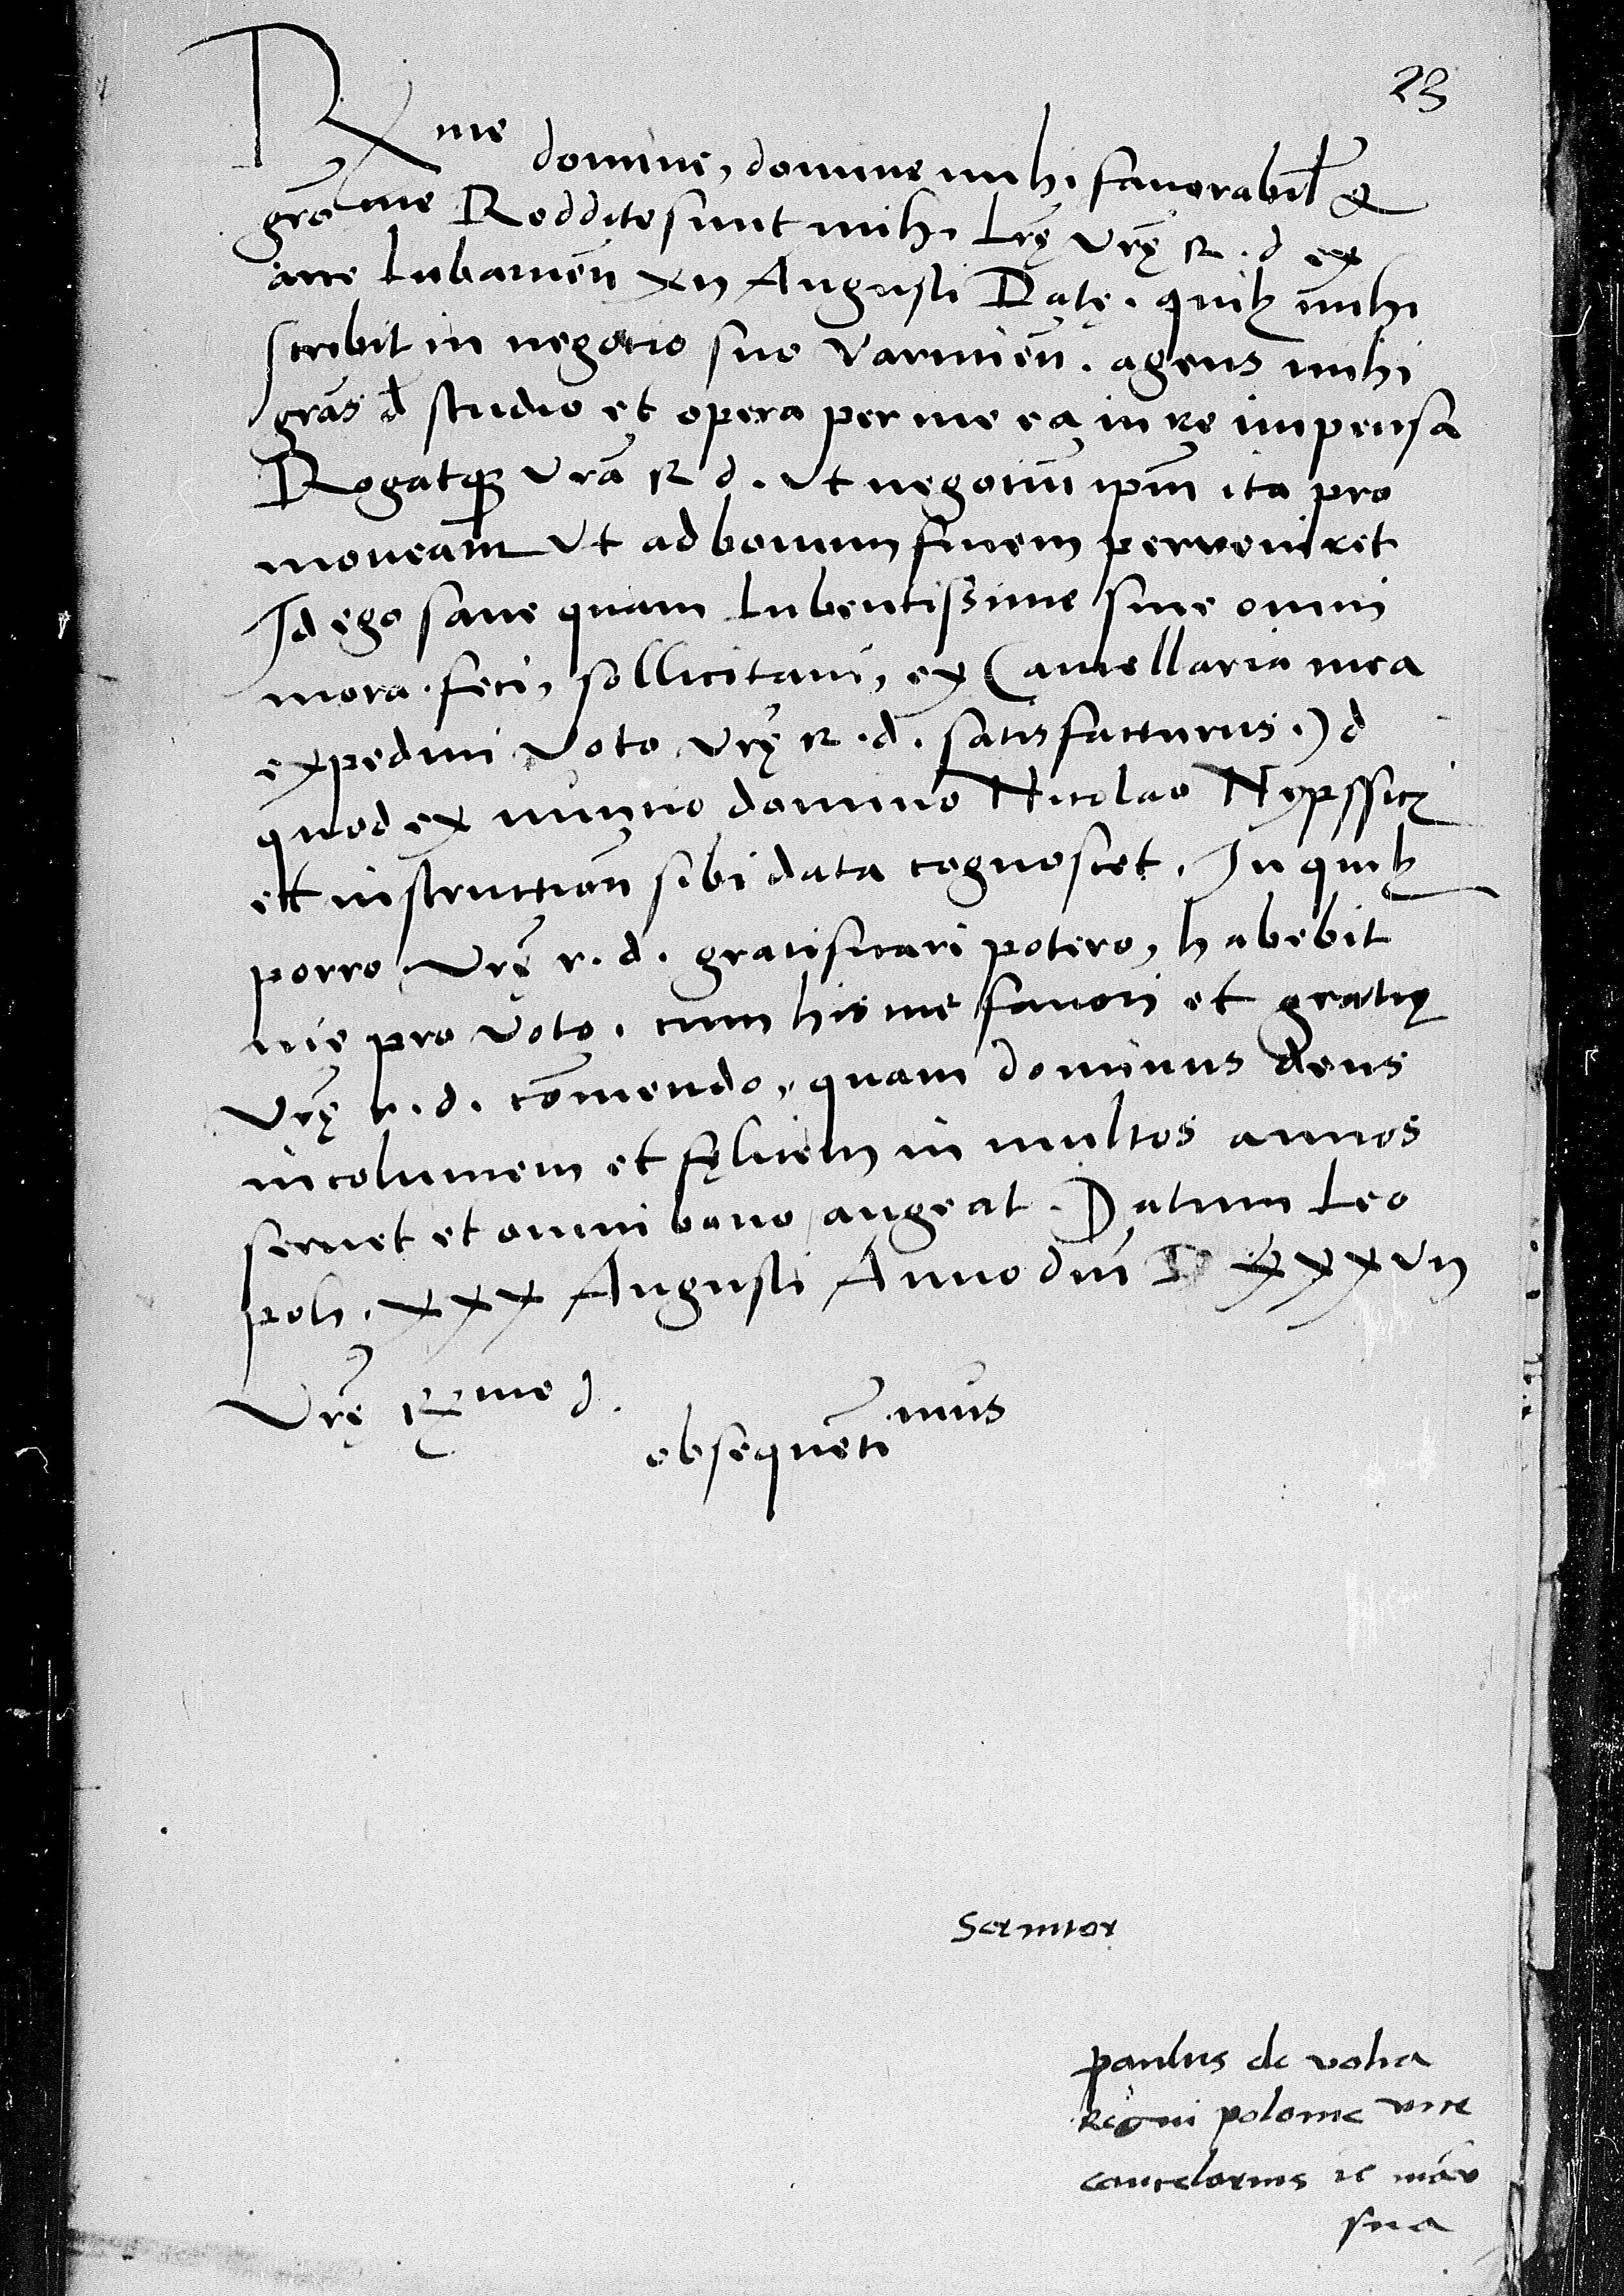 23
R<sup>me</sup> domine, domine mihi favorabil. et
gro<sup>me</sup> Reddite sunt mihi Lrę vrę R. d. ex
arce Lubavien̄ xij Augusti Datę. quibꝫ mihi
scribit in negotio suo Varmien̄. agens mihi
grās d studio et opera per me ea in re impensa
Rogatqꝫ vrā R d. ut negotiū ipm̄ ita pro
moveam ut ad bonum finem perveniret
Id ego sane quam Lubentissime sine omni
mora. feci, sollicitavi, ex Cancellaria mea
expedivi voto vrę R. d. satisfacturus. Id
quod ex nuncio domino Nicolao Nypssicz
ett instruction̄ sibi data cognoscet. In quibꝫ
porro. vrę r. d. gratificari potero, habebit
me pro voto. cum his me favori et gratię
vrę r. d. cōmendo, quam dominus deus
incolumem et fęlicem in multos annos
servet et omni bono augeat. Datum Leo
poli. xxx Augusti Anno dnī D xxxvij
Vrę R<sup>me</sup> d.
obsequēti<sup>mus</sup>
Servitor
paulus de volia
Regni polonie vice
cancelarius ss manu
sua